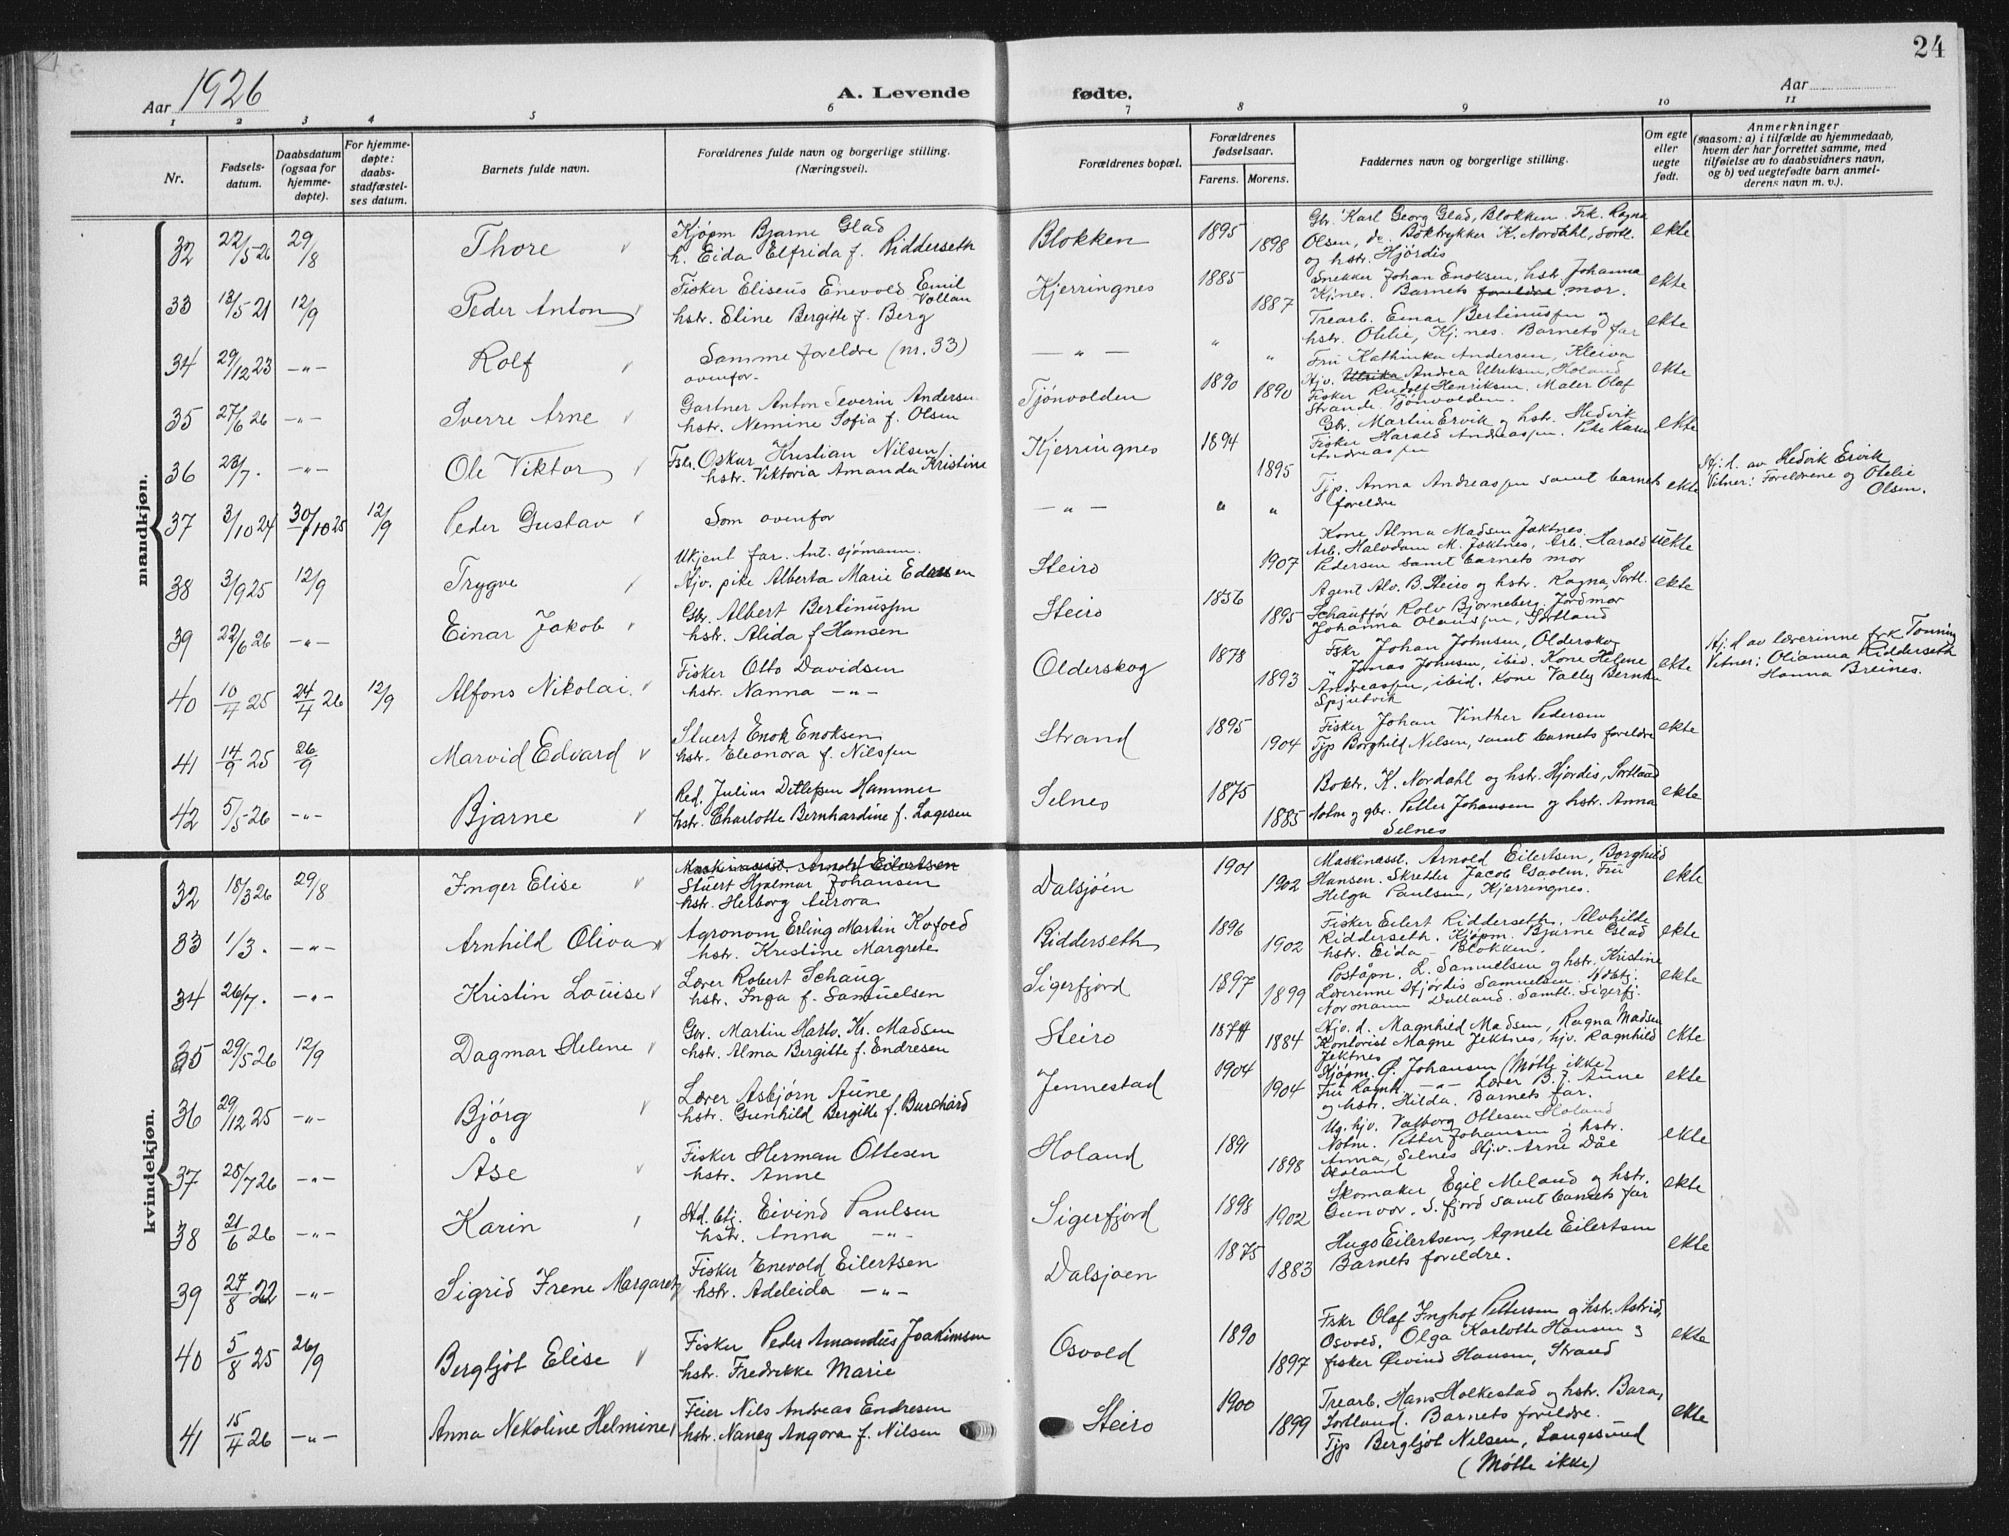 24
Aar 1926
A. Levende fødte.
Aar
1 2 3 4 5 6 7 8 9 10 11
Nr.
Fødsels-
datum.
Daabsdatum
(ogsaa for
hjemme-
døpte).
For hjemme-
døpte:
daabs-
stadfæstel-
ses datum.
Barnets fulde navn.
Forældrenes fulde navn og borgerlige stilling.
(Næringsvei).
Forældrenes bopæl.
Forældrenes
fødselsaar.
Farens. Morens.
Faddernes navn og borgerlige stilling.
Om egte
eller
uegte
født.
Anmerkninger
(saasom: a) i tilfælde av hjemmedaab,
hvem der har forrettet samme, med
tilføielse av to daabsvidners navn,
og b) ved uegtefødte barn anmel-
derens navn m. v.).
mandkjøn.
32 22/5 26 29/8 Thore
Kjøpm Bjarne Glad
h. Eida Elfrida f. Ridderseth
Blokken 1895 1898
Gbr. Karl Georg Glad, Blokken. Frk. Ragna
Olsen, do. Boktrykker K. Nordahl, Sortl.
og hstr. Hjørdis
ekte
33 13/5 21 12/9 Peder Anton
Fisker Eliseus Enevold Emil
Vollan
hstr. Eline Bergitte f. Berg
Kjerringnes 1885 1887
Snekker Johan Enoksen, hstr. Johanna
Kj.nes. Barnets foreldre mor.
ekte
34 29/12 23 -"- Rolf
Samme foreldre (nr. 33)
ovenfor
— " — " "
Trearb. Einar Bertinussen og
hstr. Otelie, Kj.nes. Barnets far
ekte
35 27/6 26 -"- Sverre Arne
Gartner Anton Severin Andersen
hstr. Nemine Sofia f. Olsen
Tjönvolden 1890 1890
Fru Kathinka Andersen, Kleiva
Hjv. Ulrika Andrea Ulriksen, Holand
Fisker Rudolf Henriksen. Maler Olaf
Strande. Tjönvolden.
ekte
36 23/7. -"- Ole Viktor
Fskr. Oskar Kristian Nilsen
hstr. Viktoria Amanda Kristine
Kjerringnes 1894 1895
Gbr. Martin Ervik og hstr. Hedvik
Fisker Harald Andreassen. Pike Karen
Andreassen
ekte
37 3/10 24 30/10 25 12/9 Peder Gustav
Som ovenfor
— " — " "
Tjp. Anna Andreassen samt barnets
foreldre
ekte
Hj: d. av Hedvik Ervik
Vitner: Foreldrene og Otelie
Olsen.
38 3/9 25 12/9 Trygve
Ukjent far. Ant. sjömann.
Hjv. pike Alberta Marie
Steiro 1907
Kone Alma Madsen Jektnes
Arb. Halvdam M. Jektnes, Arb. Harald
Pedersen samt barnets mor
uekte
39 22/6 26 -"- Einar Jakob
Gbr. Albert Bertinussen
hstr. Alida f Hansen
Steiro 1856 1895
Agent Alv. B. Steiro og hstr. Ragna, Sortl.
Schaufför Rolv Bjørneberg, Jordmor
Johanna Olaussen, Sortland
ekte
40 10/4 25 24/4 26 12/9 Alfons Nikolai.
Fisker Otto Davidsen
hstr. Nanna -"-
Olderskog 1878 1893
Fskr Johan Johnsen, Olderskog
" Jonas Johnsen, ibid. Kone Helene
Andreassen, ibid. Kone Valley
Spjutvik
ekte
Hj. d av lærerinne frk Tonning
Vitner: Olianna Ridderseth
Hanna Breines.
41 14/9 25 26/9 Marvid Edvard
Stuert Enok Enoksen
hstr. Eleonora f. Nilssen
Strand 1895 1904
Fisker Johan Vinther Pedersen
Tjp Borghild Nilsen, samt barnets foreldre
ekte
42 5/5 26 -"- Bjarne
Red. Julius Ditlefsen Hammer
hstr. Charlotte Bernhardine f. Lagesen
Selnes 1875 1885
Boktr. K. Nordahl og hstr. Hjørdis, Sortland
Notm og gbr. Petter Johansen og hstr. Anna
Selnes
ekte
kvindekjøn.
32 18/3 26 29/8 Inger Elise
Maskinassist. Arnold Eilertsen
Stuert Hjalmar Johansen
hstr. Herborg Aurora
Dalsjöen 1901 1902
Maskinasst. Arnold Eilertsen, Borghild
Hansen. Skredder Jacob Fru
Helga Paulsen, Kjerringnes.
ekte
33 1/3. -"- Arnhild Oliva
Agronom Erling Martin Kofoed
hstr. Kristine Margrete
Ridderseth 1896 1902
Fisker Eilert Ridderseth. Alvhilde
Ridderseth. Kjøpm. Bjarne Glad
hstr. Eida - Blokken.
ekte
34 26/7. -"- Kristin Louise
Lærer Robert Schaug
hstr. Inga f. Samuelsen
Sigerfjord 1897 1899
Poståpn. L. Samuelsen og hstr. Kristine
Lærerinne Hjördis Samuelsen.
Normann Dalland. Samtl. Sigerfj.
ekte
35 29/5 26 12/9 Dagmar Helene
Gbr. Martin Hartv. Kr. Madsen
hstr. Alma Bergitte f. Endresen
Steiro 1884
Hjv. d. Magnhild Madsen, Ragna Madsen
Kontorist Magne Jektnes, hjv. Ragnhild
Jektnes
ekte
36 29/12 25 -"- Björg
Lærer Asbjörn Aune
hstr. Gunhild Bergitte f. Burchard
Jennestad 1904 1904
Kjøpm. Ø. Johansen (Møtte ikke)
Fru Ragnh. -"- Lærer B. J. Aune
og hstr. Hilda. Barnets far.
ekte
37 28/7 26 -"- Åse
Fisker Herman Ottesen
hstr. Anne
Holand 1891 1898
Ug. hjv. Valborg Ottesen Holand
Notm. Petter Johansen og hstr.
Anna, Selnes Hjv. Arne Dåe
Holand
ekte
38 21/6 26 -"- Karin
Hd. btj. Eivind Paulsen
hstr. Anna -"-
Sigerfjord 1898 1902
Skomaker Egil Meland og hstr.
Gunvor, S. fjord samt barnets far
ekte
39 27/8 22 -"- Sigrid Irene Margaret
Fisker Enevold Eilertsen
hstr. Adeleida -"-
Dalsjøen 1875 1883
Hugo Eilertsen, Agnete Eilertsen
Barnets foreldre.
ekte
40 5/8 25 26/9 Bergljot Elise
Fisker Peder Amandus Joakimsen
hstr. Fredrikke Marie
Osvold 1890 1897
Fskr Olaf Inghof Pettersen og hstr. Astrid,
Osvold, Olga Karlotte Hansen og
fisker Øivind Hansen, Strand
ekte
41 15/4 26 -"- Anna Nekoline Helmine
Feier Nils Andreas Endresen
hstr. Nancy Angora f. Nilsen
Steiro 1900 1899
Trearb. Hans Holkestad og hstr. Bara,
Sortland. Barnets foreldre.
Tjp Bergljot Nilsen, Langesund
(Møtte ikke)
ekte